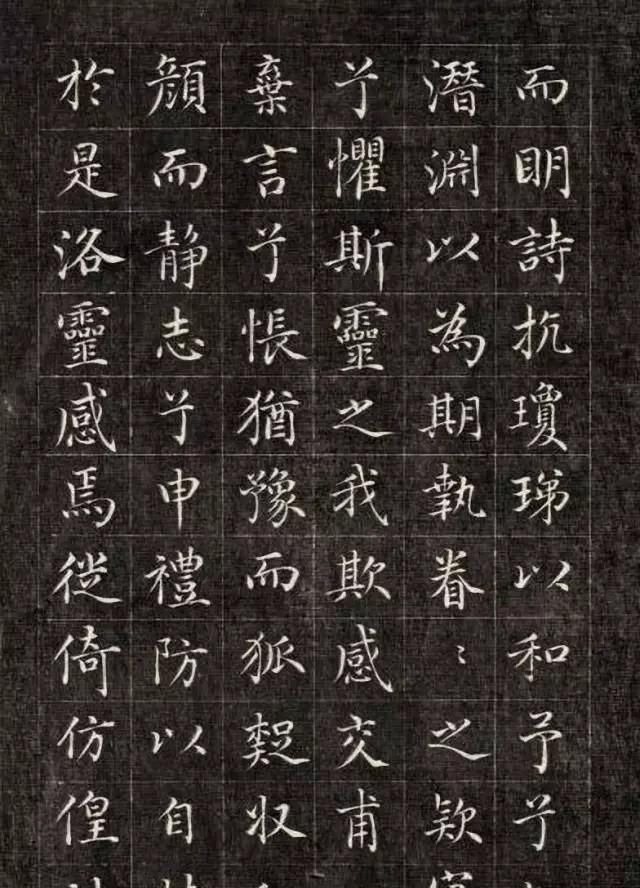 而眀詩抗瓊珶以和予兮
潛淵以為期執眷〻之欵
兮懼斯靈之我欺感交甫
棄言兮悵猶豫而狐疑收
顏而靜志兮申禮防以自
於是洛靈感焉徙倚仿偟